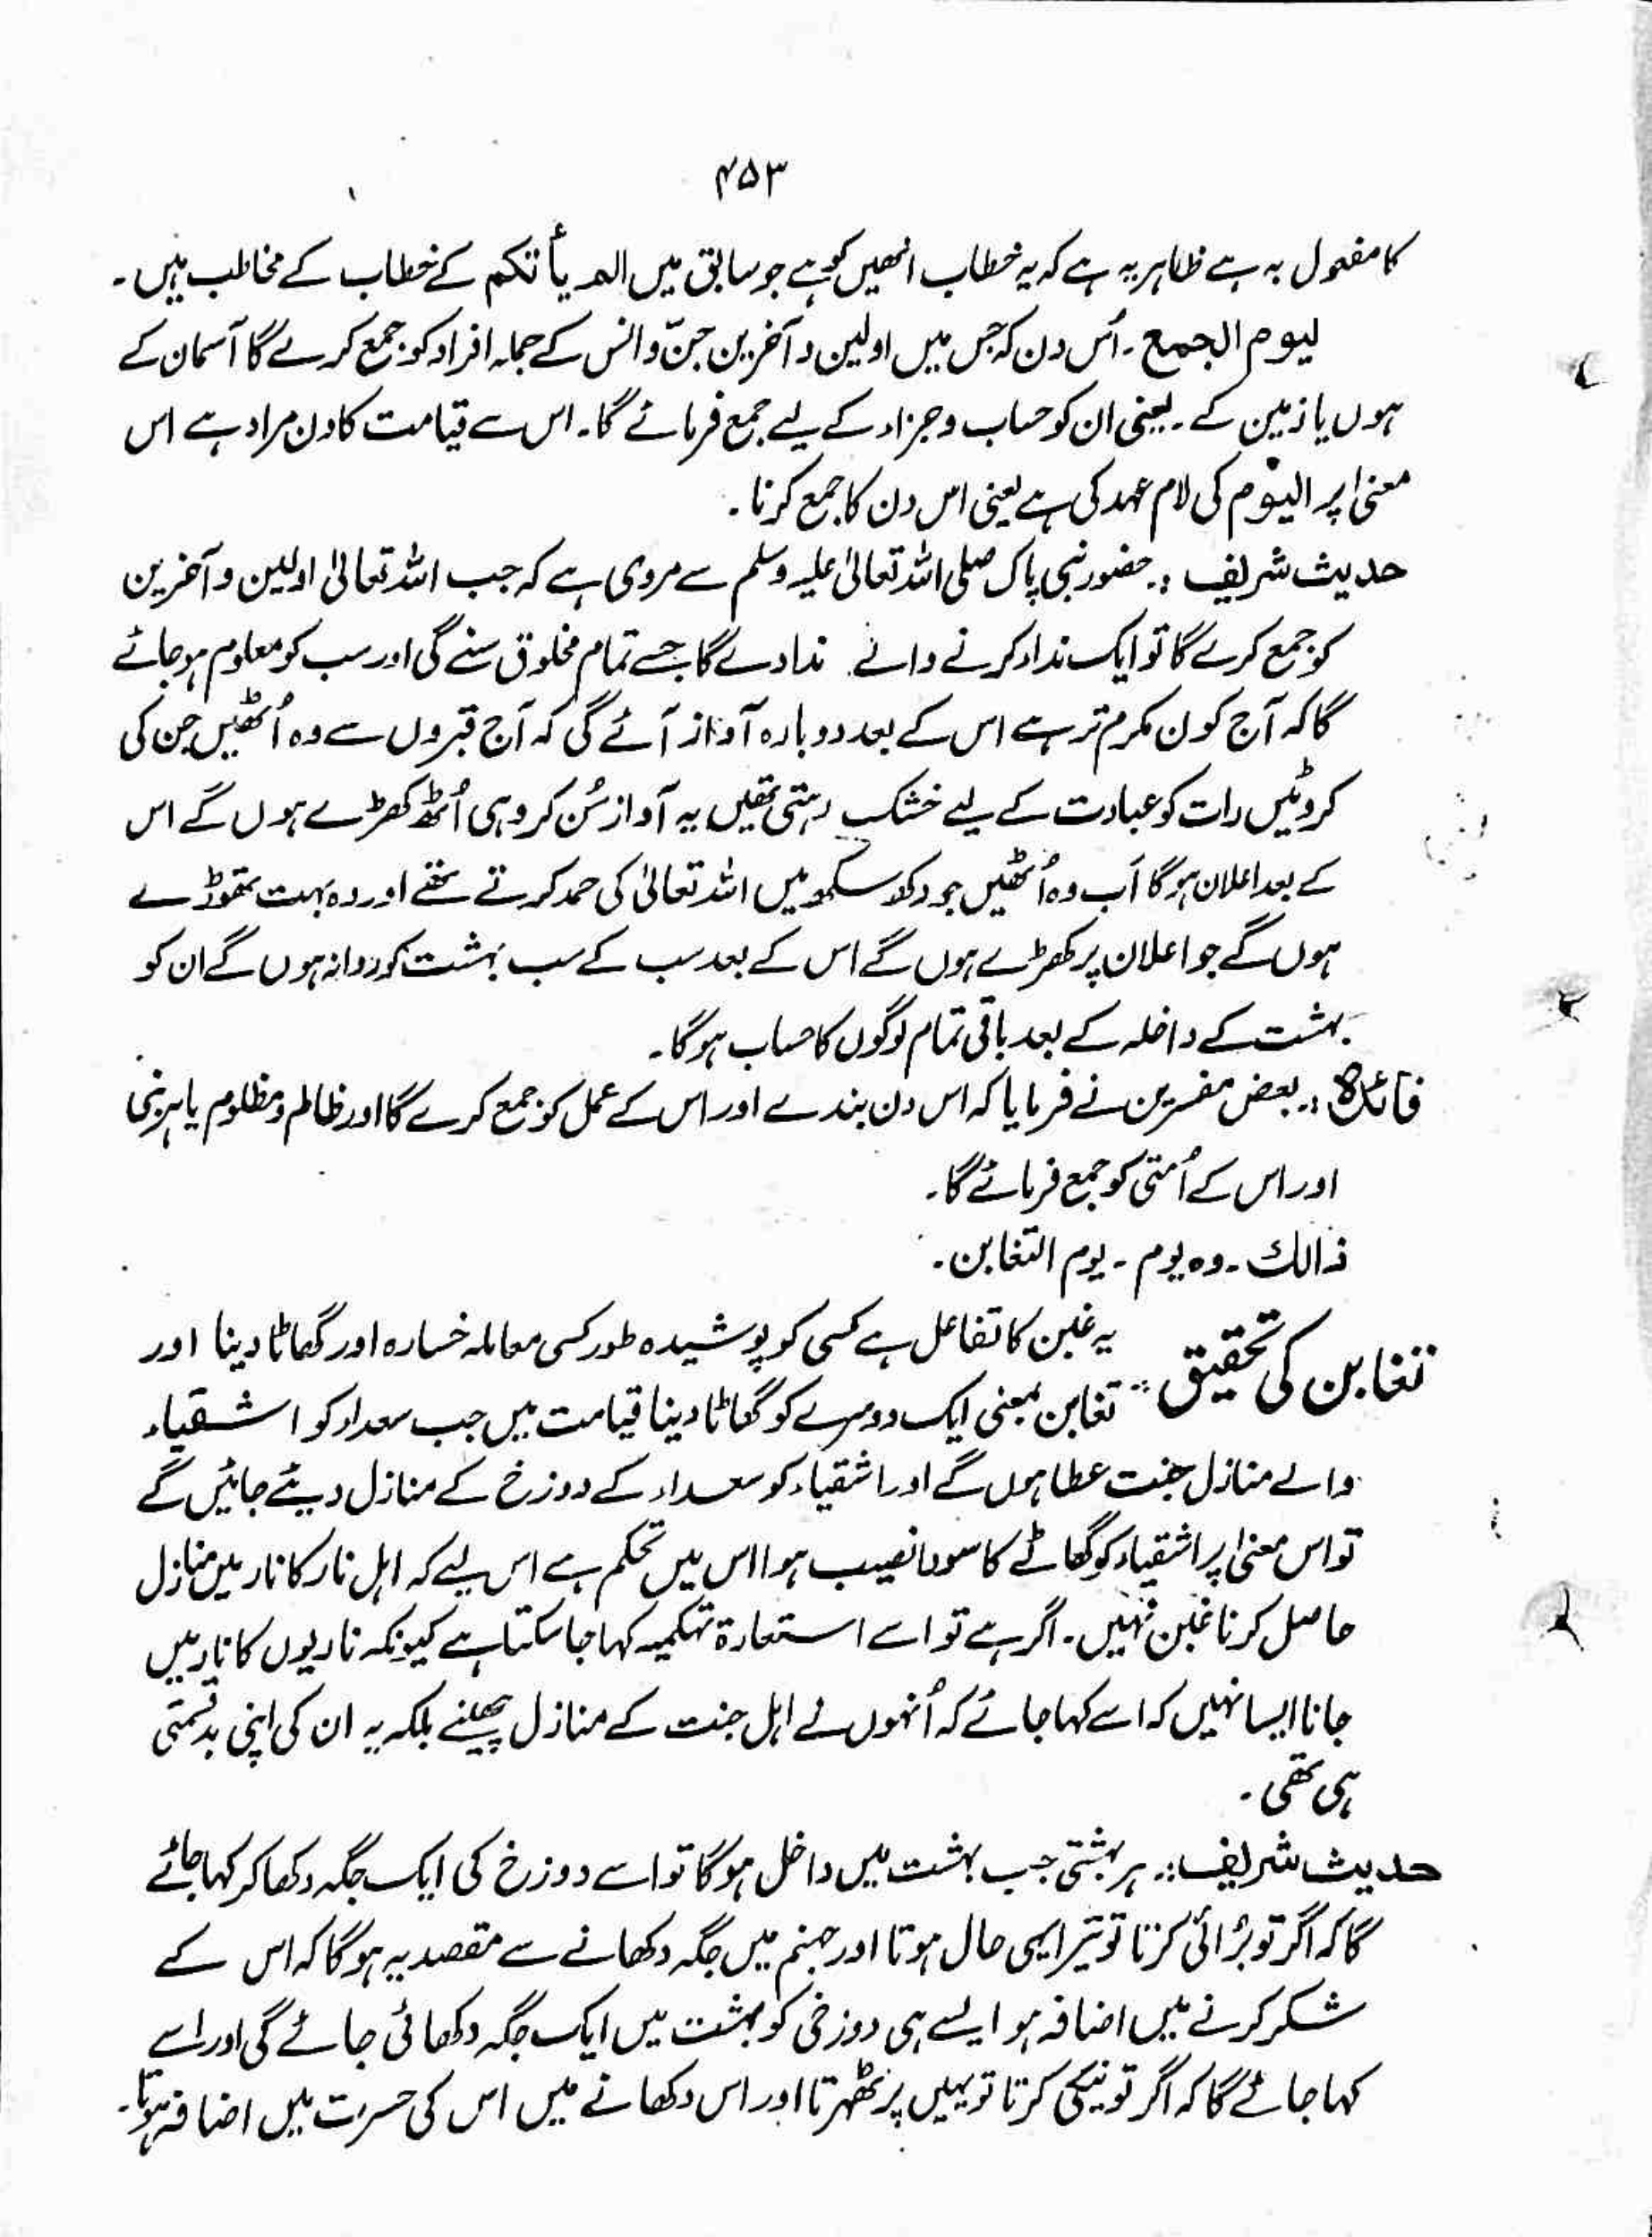 ۴۵۳
کا مفعول بہ ہے ظاہر یہ ہے کہ یہ خطاب انھیں کو ہے جو سابق میں الم یأتکم کے خطاب کے مخاطب ہیں۔
لیوم الجمع۔ اُس دن کہ جس میں اولین و آخرین جنّ و انس کے جملہ افراد کو جمع کرے گا آسمان کے
ہوں یا زمین کے۔ یعنی ان کو حساب و جزاء کے لیے جمع فرمائے گا۔ اس سے قیامت کا دن مراد ہے اس
معنیٰ پر الیوم کی لام عہد کی ہے یعنی اس دن کا جمع کرنا۔
حدیث شریف :۔ حضور نبی پاک صلی اللہ تعالیٰ علیہ وسلم سے مروی ہے کہ جب اللہ تعالیٰ اولین و آخرین
کو جمع کرے گا تو ایک نداء کرنے والے ندا دے گا جسے تمام مخلوق سنے گی اور سب کو معلوم ہو جائے
گا کہ آج کون مکرم تر ہے اس کے بعد دوبارہ آواز آئے گی کہ آج قبروں سے وہ اُٹھیں جن کی
کروٹیں رات کو عبادت کے لیے خشک رہتی تھیں یہ آواز سُن کر وہی اُٹھ کھڑے ہوں گے اس
کے بعد اعلان ہوگا اَب وہ اُٹھیں جو دکھ سکھ میں اللہ تعالیٰ کی حمد کرتے تھے اور وہ بہت تھوڑے
ہوں گے جو اعلان پر کھڑے ہوں گے اس کے بعد سب کے سب بہشت کو روانہ ہوں گے ان کو
بہشت کے داخلہ کے بعد باقی تمام لوگوں کا حساب ہوگا۔
فائدہ :۔ بعض مفسرین نے فرمایا کہ اس دن بندے اور اس کے عمل کو جمع کرے گا اور ظالم و مظلوم یا ہر نبی
اور اس کے اُمتی کو جمع فرمائے گا۔
ذالک۔ وہ یوم۔ یوم التغابن۔
تغابن کی تحقیق :۔ یہ غبن کا تفاعل ہے کسی کو پوشیدہ طور کسی معاملہ خسارہ اور گھاٹا دینا اور
تغابن بمعنی ایک دوسرے کو گھاٹا دینا قیامت میں جب سعداء کو اشقیاء
والے منازل جنت عطا ہوں گے اور اشقیاء کو سعداء کے دوزخ کے منازل دیئے جائیں گے
تو اس معنیٰ پر اشقیاء کو گھاٹے کا سودا نصیب ہوا اس میں تحکم ہے اس لیے کہ اہل نار کا نار میں منازل
حاصل کرنا غبن نہیں۔ اگر ہے تو اسے استعارۃ تہکمیہ کہا جا سکتا ہے کیونکہ ناریوں کا نار میں
جانا ایسا نہیں کہ اسے کہا جائے کہ اُنہوں نے اہل جنت کے منازل چھینے بلکہ یہ ان کی اپنی بدقسمتی
ہی تھی۔
حدیث شریف :۔ ہر بہشتی جب بہشت میں داخل ہوگا تو اسے دوزخ کی ایک جگہ دکھا کر کہا جائے
گا کہ اگر تو بُرائی کرتا تو تیرا یہی حال ہوتا اور جہنم میں جگہ دکھانے سے مقصد یہ ہوگا کہ اس کے
شکر کرنے میں اضافہ ہو ایسے ہی دوزخی کو بہشت میں ایک جگہ دکھائی جائے گی اور اسے
کہا جائے گا کہ اگر تو نیکی کرتا تو یہیں پر ٹھہرتا اور اس دکھانے میں اس کی حسرت میں اضافہ ہوتا۔